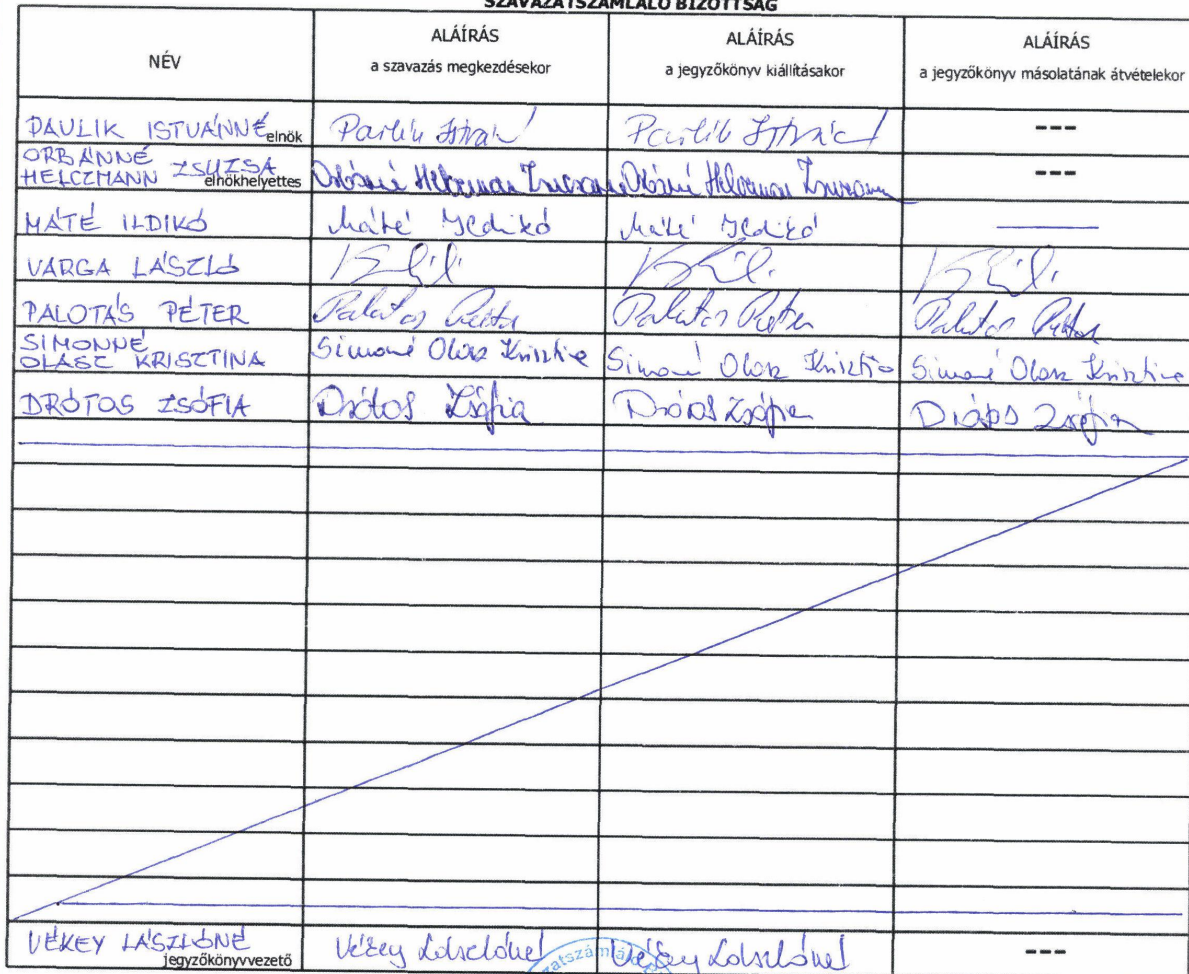 SZAVAZATSZÁMLÁLÓ BIZOTTSÁG
NÉV
ALÁÍRÁS
a szavazás megkezdésekor
ALÁÍRÁS
a jegyzőkönyv kiállításakor
ALÁÍRÁS
a jegyzőkönyv másolatának átvételekor
PAULIK ISTVÁNNÉ elnök ---
ORBÁNNÉ
HELCZMANN ZSUZSA elnökhelyettes ---
MÁTÉ ILDIKÓ Máté Ildikó Máté Ildikó
VARGA LÁSZLÓ
PALOTÁS PÉTER Palotás Péter Palotás Péter Palotás Péter
SIMONNÉ
OLASZ KRISZTINA Simonné Olasz Krisztina Simonné Olasz Krisztina Simonné Olasz Krisztina
DRÓTOS ZSÓFIA Drótos Zsófia Drótos Zsófia Drótos Zsófia
VÉKEY LÁSZLÓNÉ jegyzőkönyvvezető Vékey Lászlóné Vékey Lászlóné ---